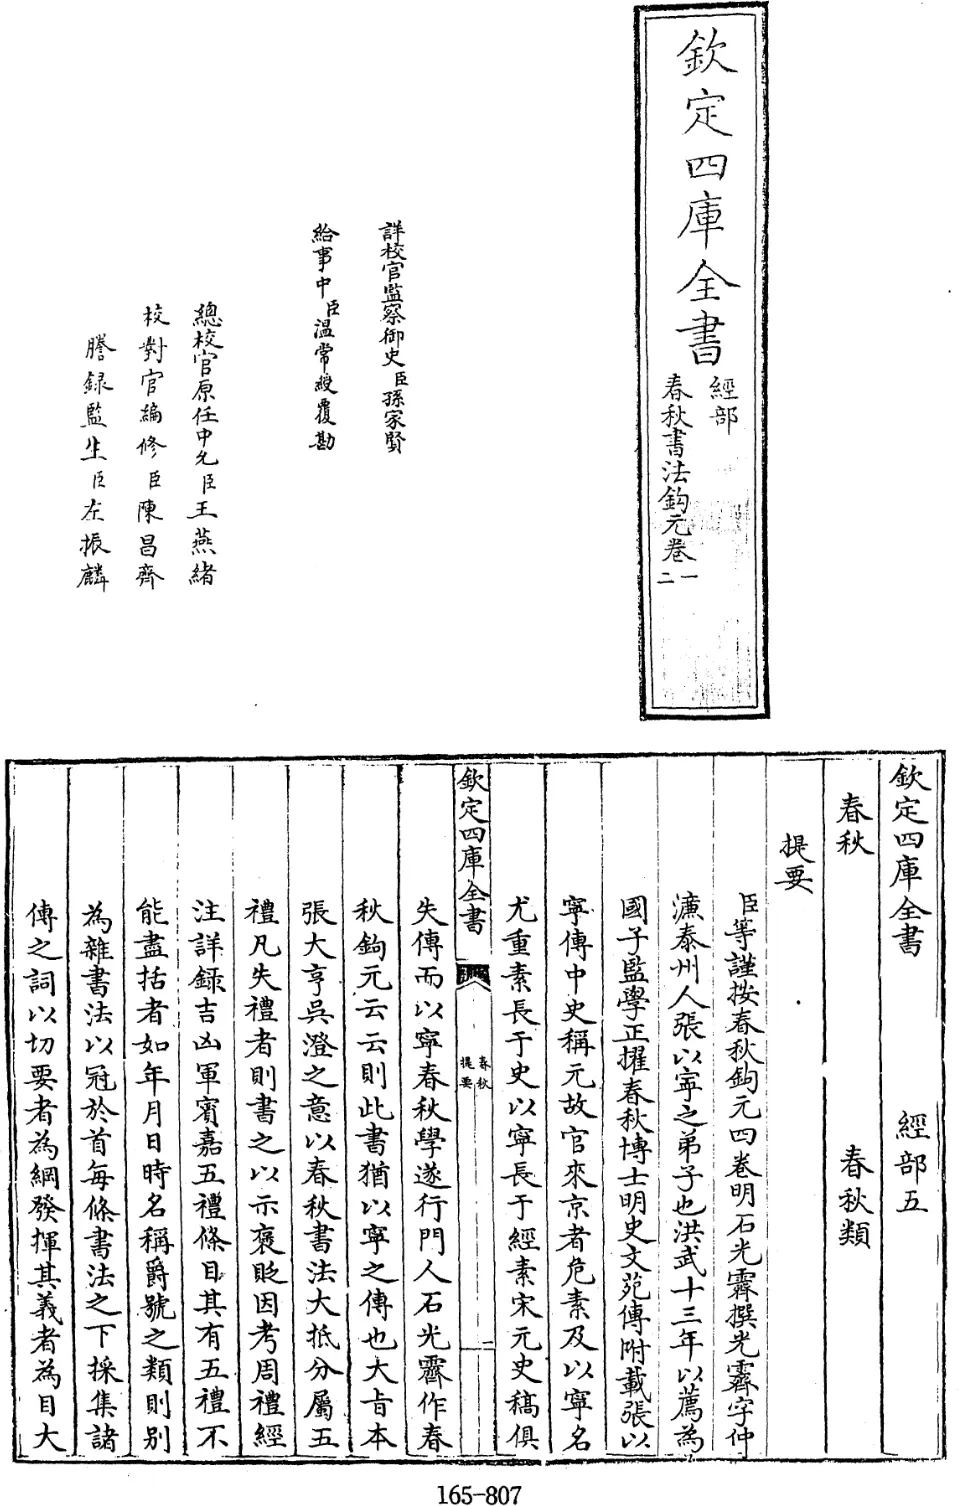 欽定四庫全書
經部
春秋書法鈎元卷一
二
詳校官監察御史臣孫家賢
給事中臣溫常綬覆勘
總校官原任中允臣王燕緒
校對官編修臣陳昌齊
謄錄監生臣左振麟
欽定四庫全書 經部五
春秋 春秋類
提要
臣等謹按春秋鈎元四卷明石光霽撰光霽字仲
濂泰州人張以寧之弟子也洪武十三年以薦為
國子監學正擢春秋博士明史文苑傳附載張以
寧傳中史稱元故官來京者危素及以寧名
尤重素長于史以寧長于經素宋元史稿俱
欽定四庫全書
春秋
提要
一
失傳而以寧春秋學遂行門人石光霽作春
秋鈎元云云則此書猶以寧之傳也大旨本
張大亨吳澄之意以春秋書法大抵分屬五
禮凡失禮者則書之以示褒貶因考周禮經
注詳録吉凶軍賓嘉五禮條目其有五禮不
能盡括者如年月日時名稱爵號之類則別
為雜書法以冠於首每條書法之下採集諸
傳之詞以切要者為綱發揮其義者為目大
165-807